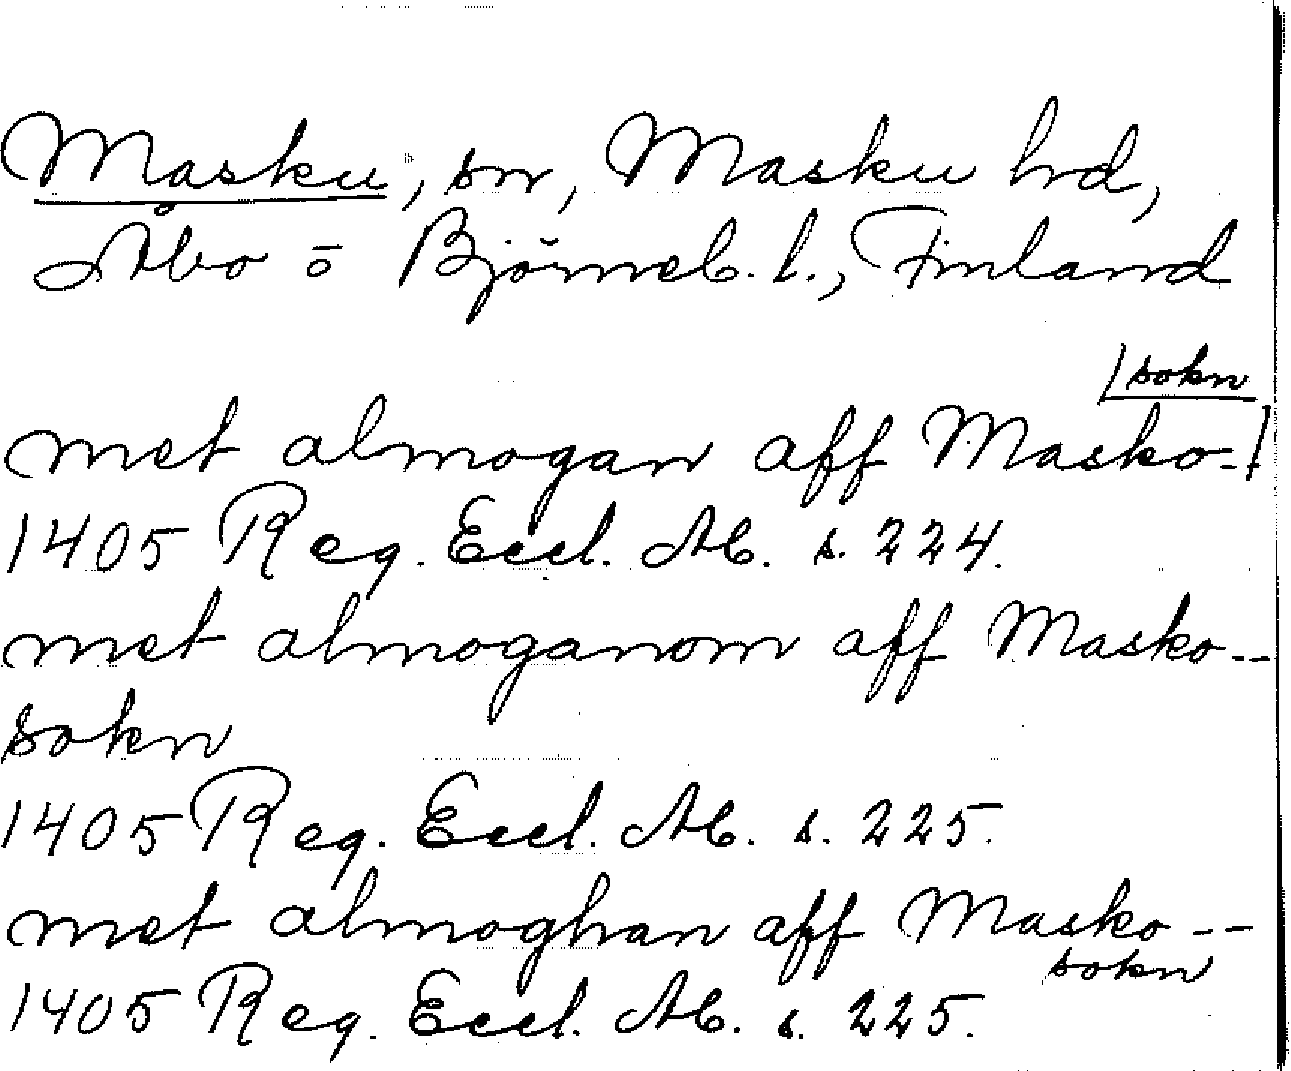 Masku, sn, Masku hrd,
Åbo o Björneb. l., Finland
met almogan aff Masko-
sokn
1405 Reg. Eccl. Ab. s. 224.
met almoganom aff Masko--
sokn
1405 Reg. Eccl. Ab. s. 225.
met almoghan aff Masko--
sokn
1405 Reg. Eccl. Ab. s. 225.